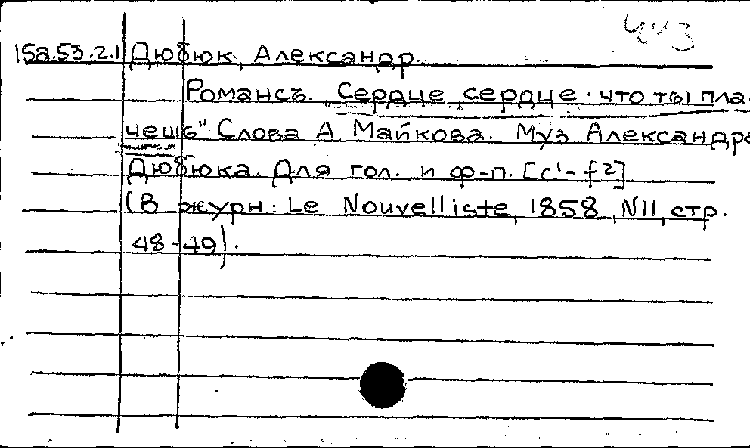 443
15a.53.2.1 Дюбюк, Александр.
Романсъ. „Сердце, сердце! что ты пла-
чешь" Слова А. Майкова. Муз. Александра
Дюбюка. Для гол. и ф-п. [c¹-f²]
(В журн.: Le Nouvelliste, 1858, N11, стр.
48-49).